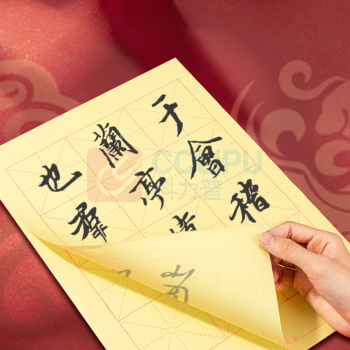 于會稽
蘭亭
也羣
COLIPU
科力普